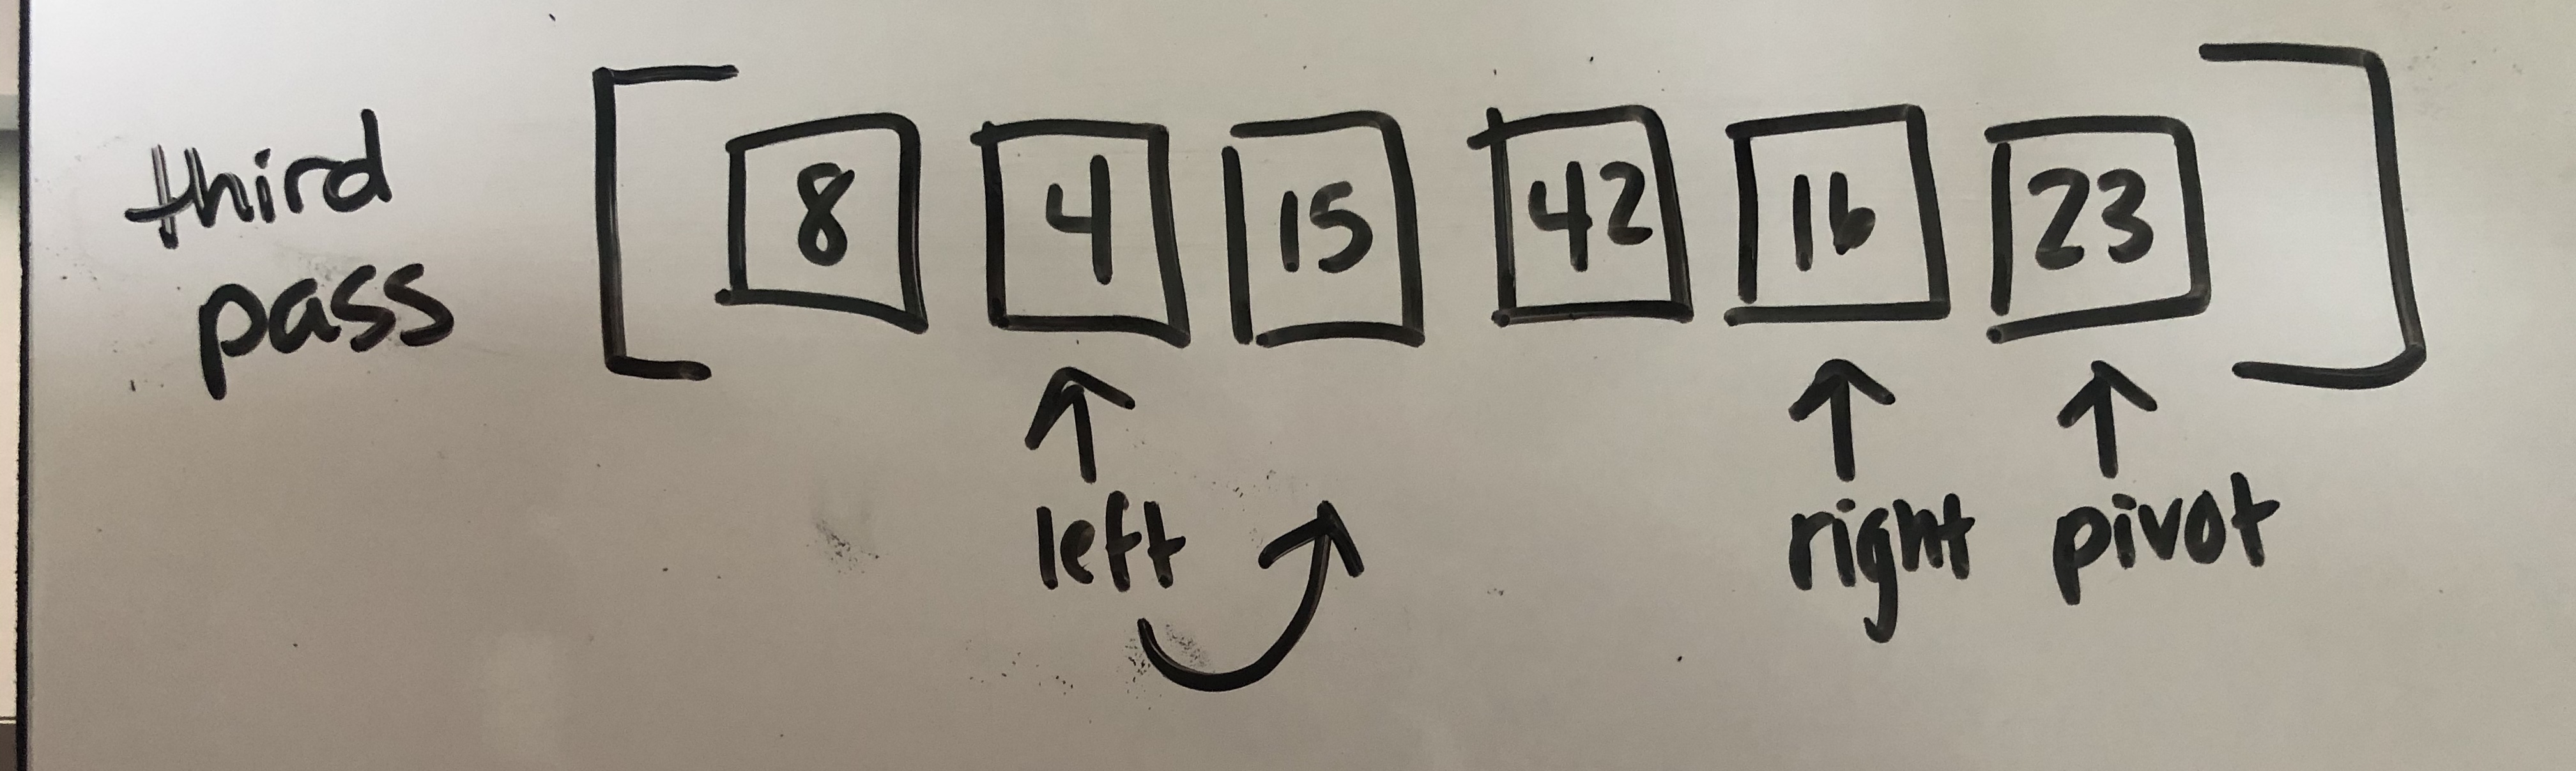 third
pass
[ 8 4 15 42 16 23 ]
left right pivot